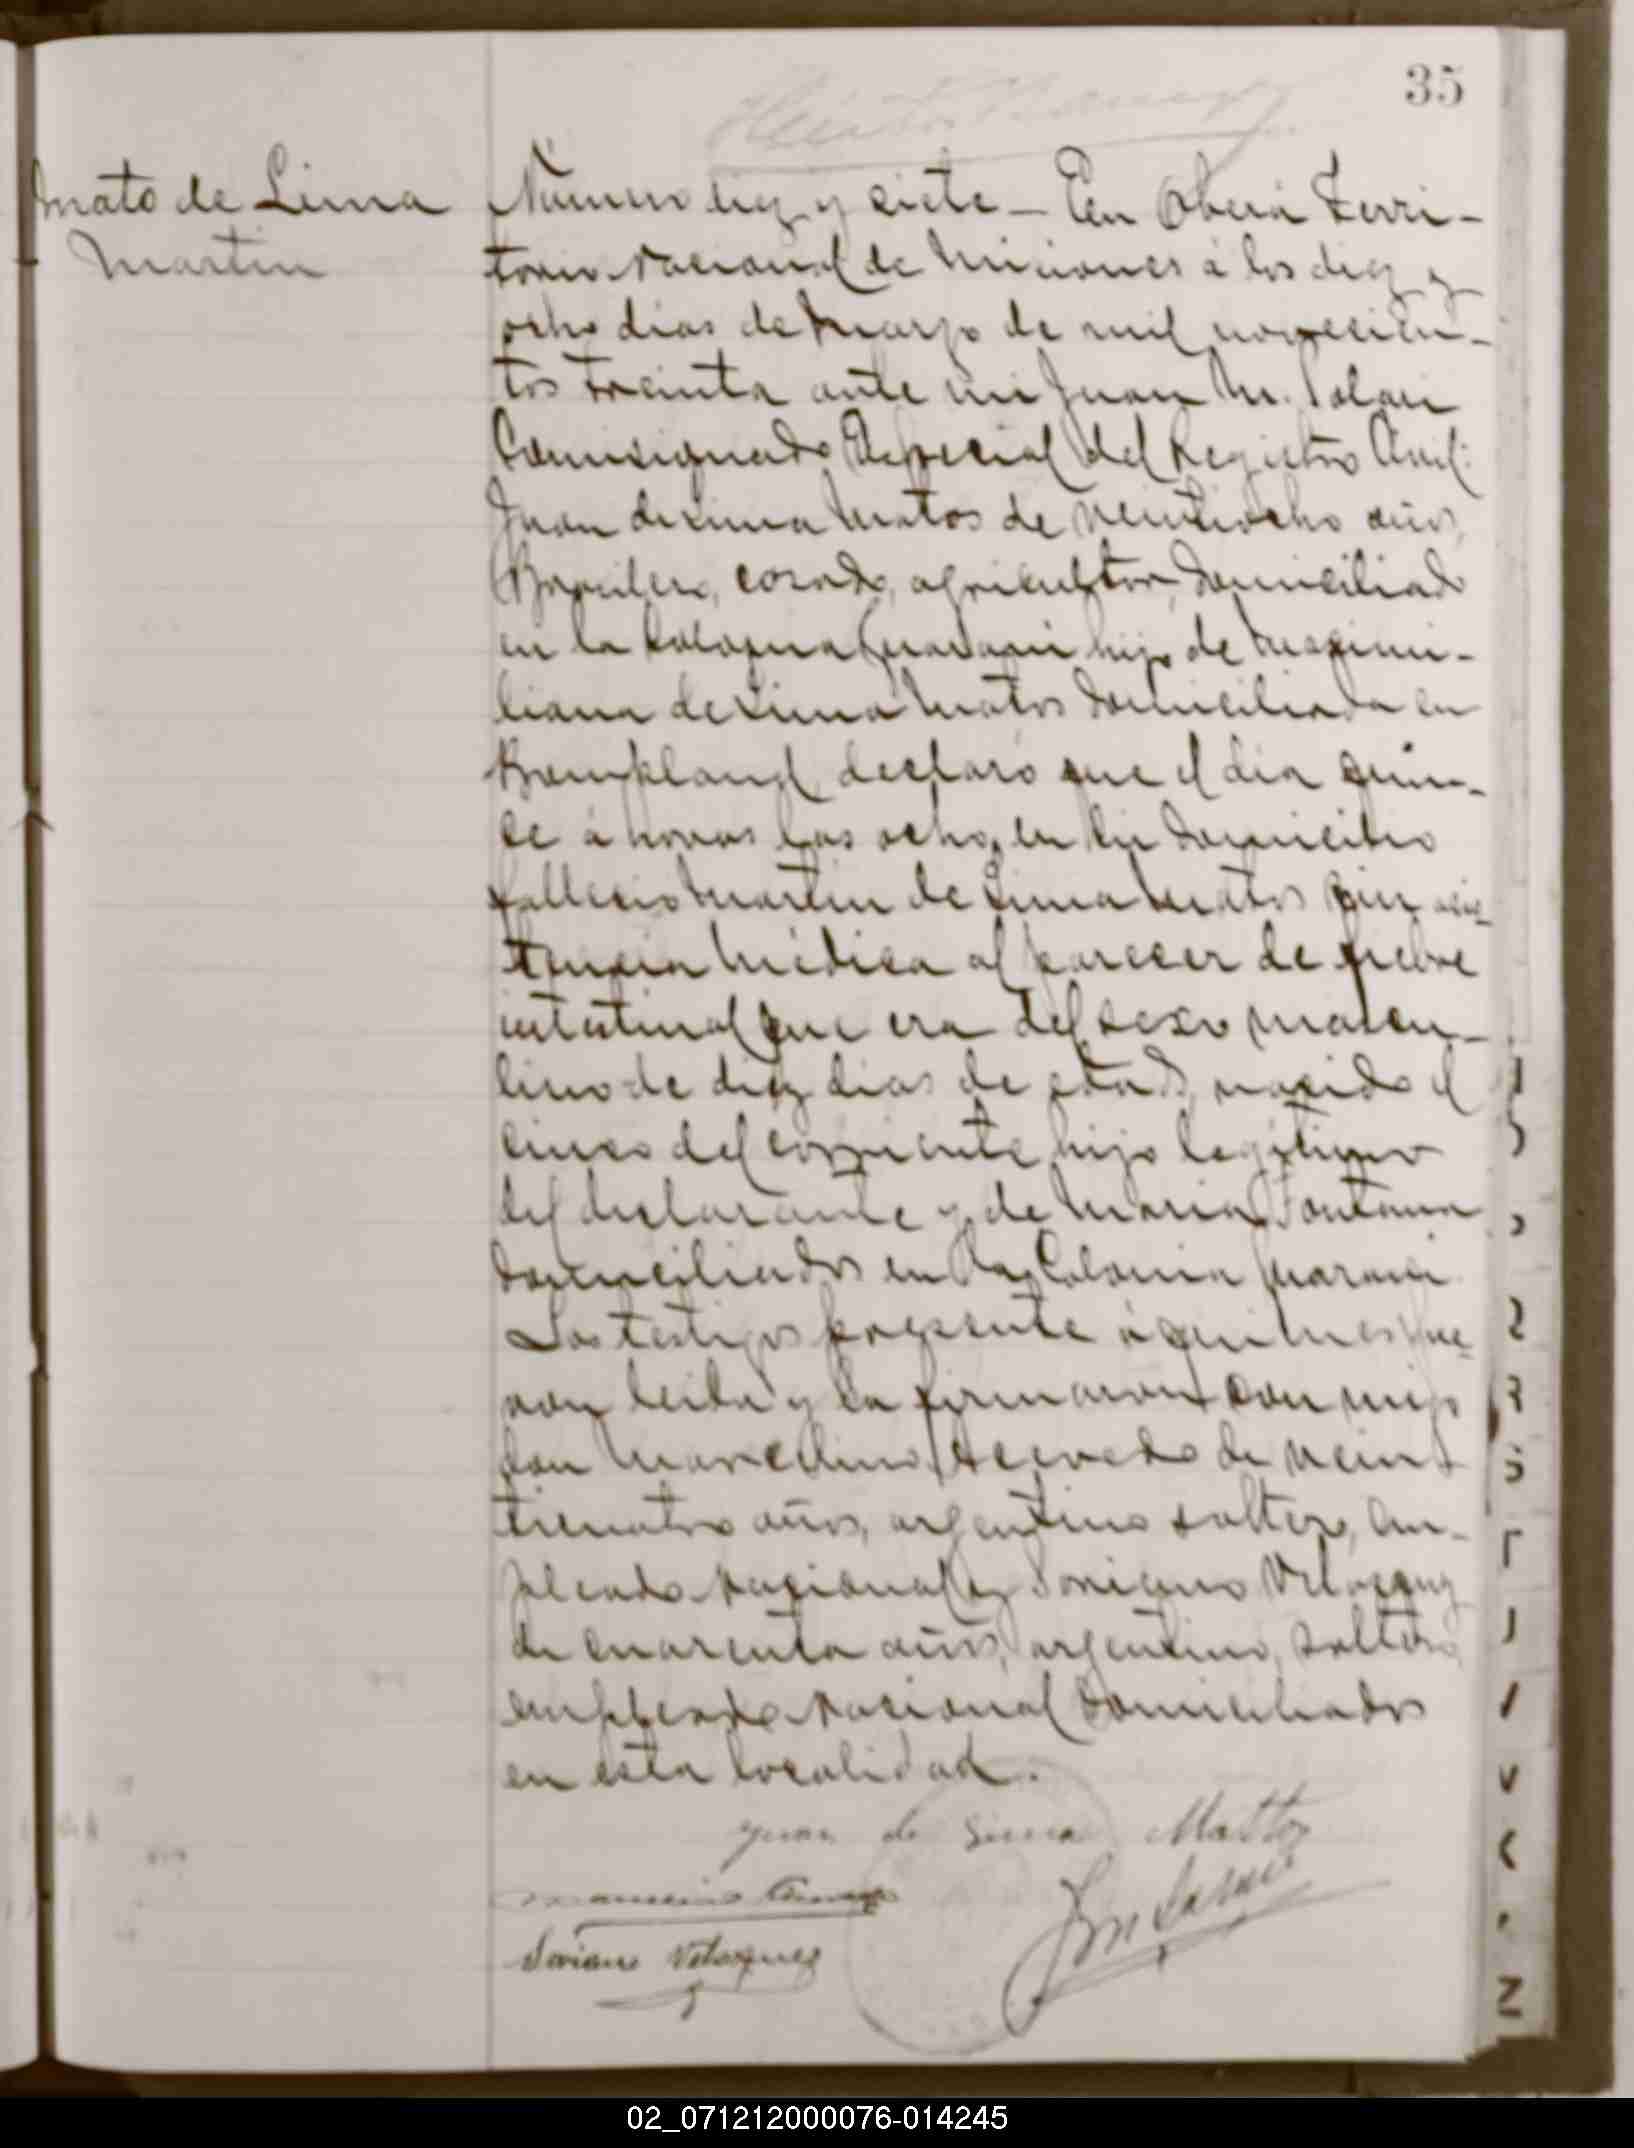 35
Mato de Lima
Martin
Número diez y siete — En Oberá Terri-
torio Nacional de Misiones á los diez y
ocho dias de Marzo de mil novecien-
tos treinta ante mi Juan M. Solari
Comisionado Especial del Registro Civil:
Juan de Lima Matos de veintiocho años,
Brasilero, casado, agricultor, domiciliado
en la Colonia Guarani hijo de Maximi-
liana de Lima Matos domiciliada en
Bompland declaró que el dia quin-
ce á horas las ocho, en su domicilio
fallecio Martin de Lima Matos sin asis-
tencia médica al parecer de fiebre
intestinal que era del sexo mascu-
lino de diez dias de edad, nacido el
cinco del corriente, hijo legítimo
del declarante y de Maria Fontana
domiciliados en la Colonia Guarani.
Los testigos presente á quienes fue-
ron leida y la firmaron con migo
don Marcelino Acevedo de vein-
ticuatro años, argentino soltero, em-
pleado Nacional y Soriano Velazquez
de cuarenta años, argentino, soltero,
empleado Nacional domiciliados
en esta localidad.
Juan de Lima Mattos
Marcelino Acevedo
Soriano Velazquez
02_071212000076-014245